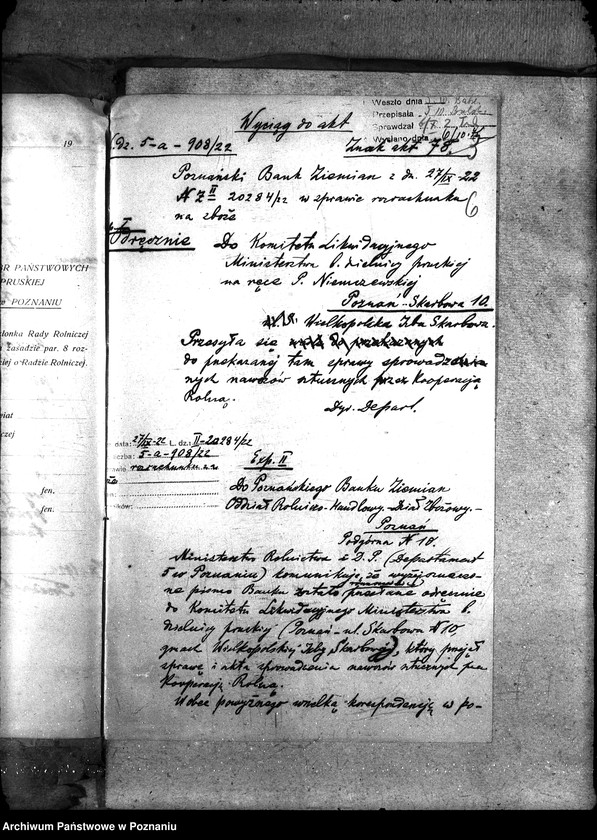 19
OR PAŃSTWOWYCH
PRUSKIEJ
w POZNANIU
członka Rady Rolniczej
zasadzie par. 8 roz-
ej o Radzie Rolniczej.
fen.
fen.
Weszło dnia
Przepisała
Sprawdzał
Wysłano dnia
Wyciąg do akt
L.dz. 5-a-908/22
Znak akt 78.
Poznański Bank Ziemian z dn. 27/IX-22
N Z II 20284/22 w sprawie rozrachunku
na zboże
Odręcznie
Do Komitetu Likwidacyjnego
Ministerstwa b. dzielnicy pruskiej
na ręce P. Niemczewskiej
Poznań-Skarbowa 10.
Wielkopolska Izba Skarbowa.
Przesyła się
do przekazanej tam sprawy sprowadzo-
nych nawozów sztucznych przez Kooperację
Rolną.
Dyr. Depart.
data: 27/IX-22 L. dz.: II-20284/22
liczba: 5-a-908/22
rozrachunku
Exp. II
Do Poznańskiego Banku Ziemian
Oddział Rolniczo-Handlowy-Dział Zbożowy.-
Poznań
Podgórna N 18.
Ministerstwo Rolnictwa i D. P. (Departament
w Poznaniu) komunikuje, że wyżej oznaczo-
ne pismo Banku zostało przesłane odręcznie
do Komitetu Likwidacyjnego Ministerstwa b.
dzielnicy pruskiej (Poznań-ul. Skarbowa N 10,
gmach Wielkopolskiej Izby Skarbowej), który przejął
sprawę i akta sprowadzenia nawozów sztucznych przez
Kooperację Rolną.
Wobec powyższego wszelką korespondencję w po-
Archiwum Państwowe w Poznaniu